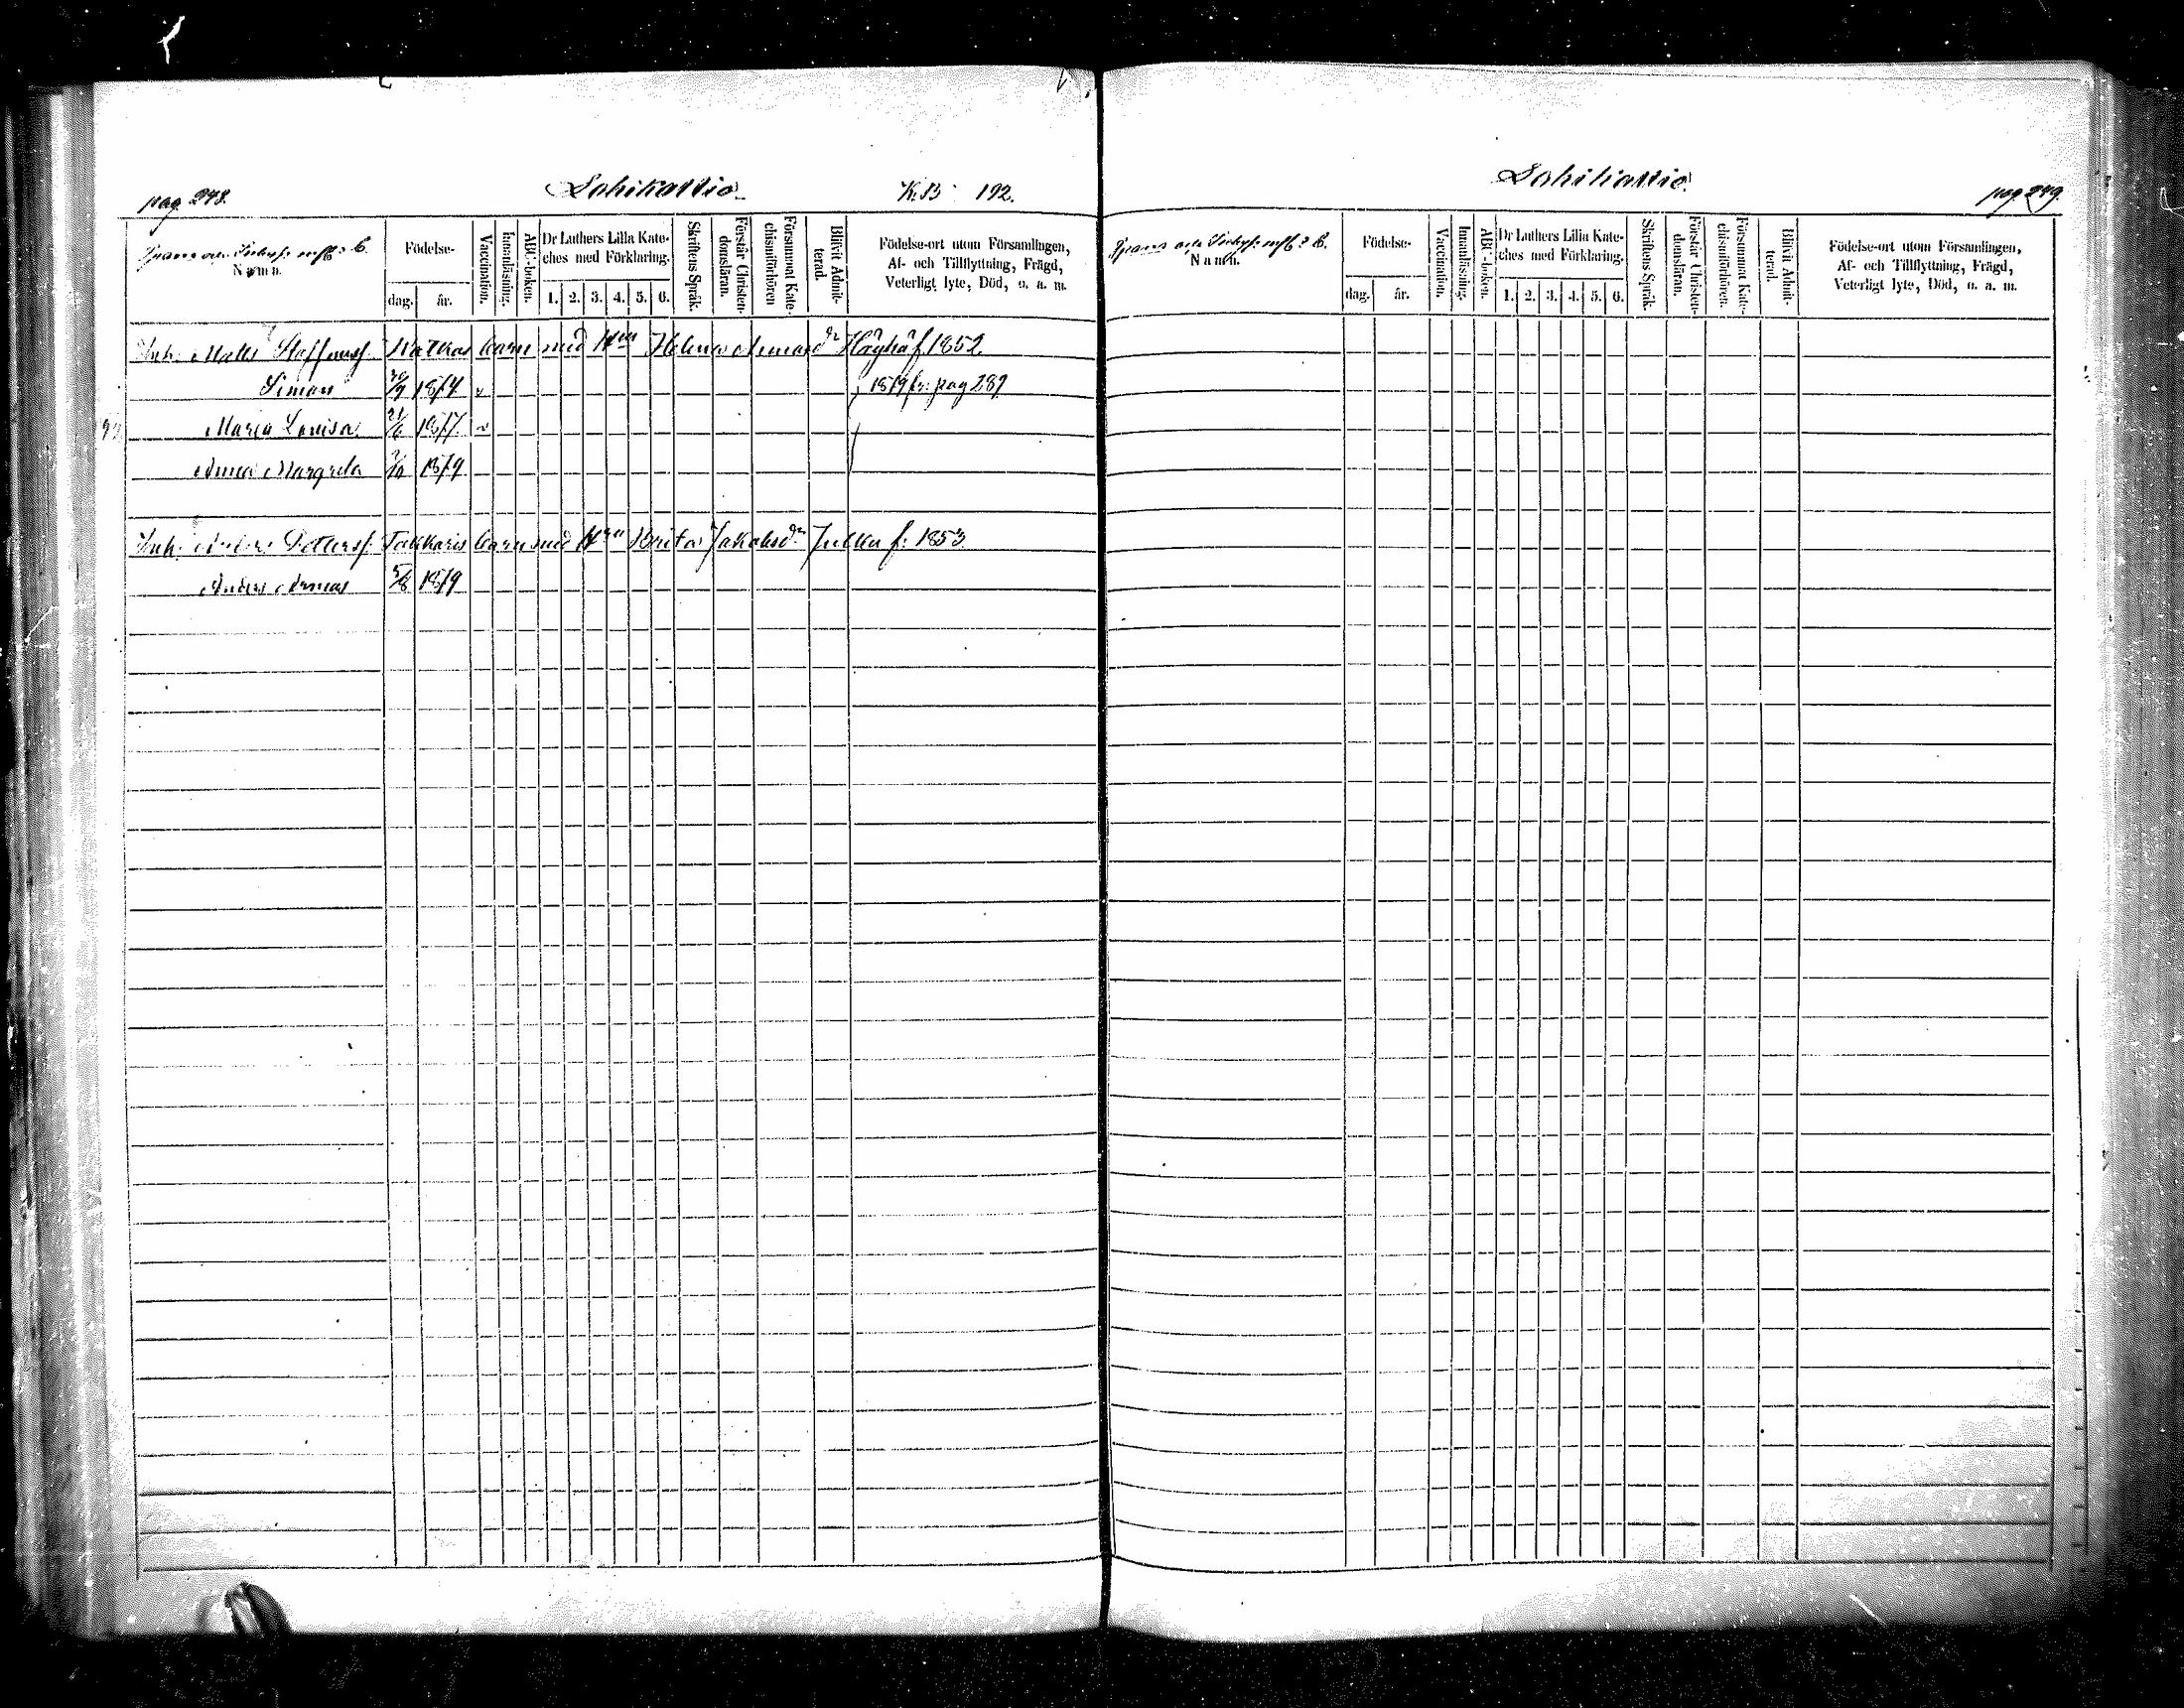 pag. 248.
Lohikallio
K.B 192.
Namn.
Födelse-
dag.
år.
Vaccination.
Innanläsning.
ABC-boken.
Dr Luthers Lilla Kate-
ches med Förklaring.
1. 2. 3. 4. 5. 6.
Skriftens Språk.
Förstår Christen-
domsläran.
Försummat Kate-
chismiförhören
Blifvit Admit-
terad.
Födelse-ort utom Församlingen,
Af- och Tillflyttning, Frägd,
Veterligt lyte, Död, o. a. m.
Inh. Matts Staffanss. barn med Helena 1852
Simon 1874 1879 fr. pag 289
Maria Lovisa 1877
Anna Margreta 1879
Inh. Petterss. barn med Brita Jakobsdr f. 1853
Anders 5/8 1879
Lohikallio
pag. 249.
Namn.
Födelse-
dag.
år.
Vaccination.
Innanläsning.
ABC-boken.
Dr Luthers Lilla Kate-
ches med Förklaring.
1. 2. 3. 4. 5. 6.
Skriftens Språk.
Förstår Christen-
domsläran.
Försummat Kate-
chismiförhören.
Blifvit Admit-
terad.
Födelse-ort utom Församlingen,
Af- och Tillflyttning, Frägd,
Veterligt lyte, Död, o. a. m.